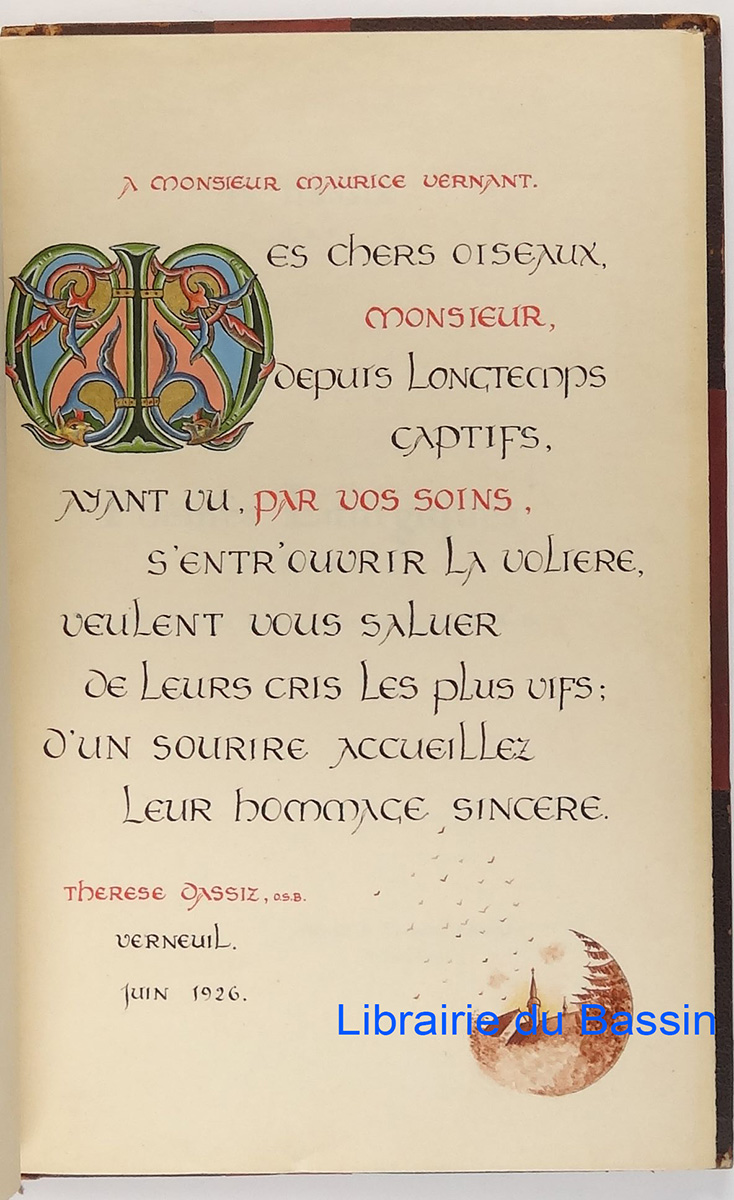 A MONSIEUR MAURICE VERNANT.
MES CHERS OISEAUX,
MONSIEUR,
DEPUIS LONGTEMPS
CAPTIFS,
AYANT VU, PAR VOS SOINS,
S'ENTR'OUVRIR LA VOLIERE,
VEULENT VOUS SALUER
DE LEURS CRIS LES PLUS VIFS;
D'UN SOURIRE ACCUEILLEZ
LEUR HOMMAGE SINCERE.
THERESE DASSIZ, O.S.B.
VERNEUIL.
JUIN 1926.
Librairie du Bassin